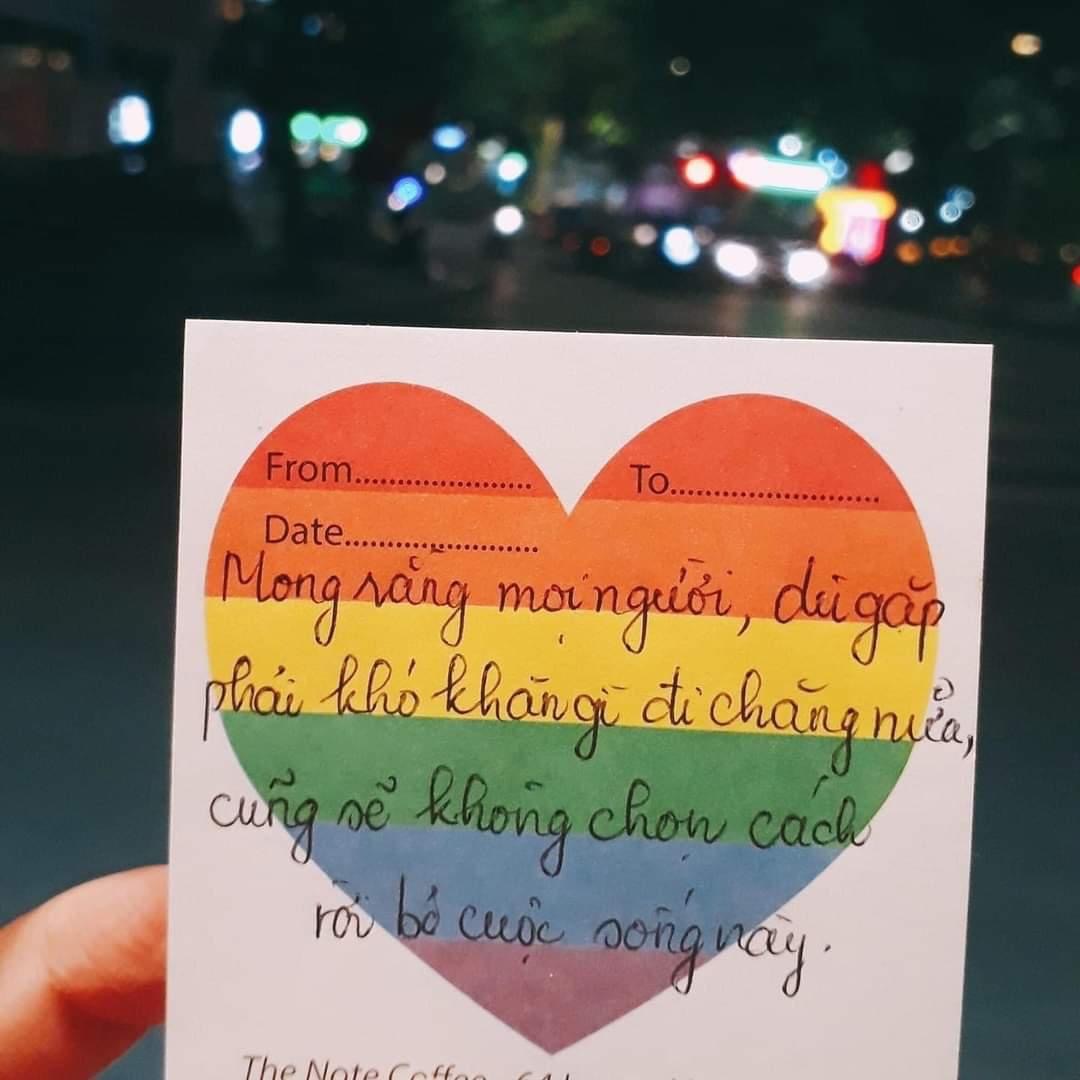 From.................... To.........................
Date.......................
Mong rằng mọi người, dù gặp
phải khó khăn gì đi chăng nữa,
cũng sẽ không chọn cách
rời bỏ cuộc sống này.
The Note Coffee